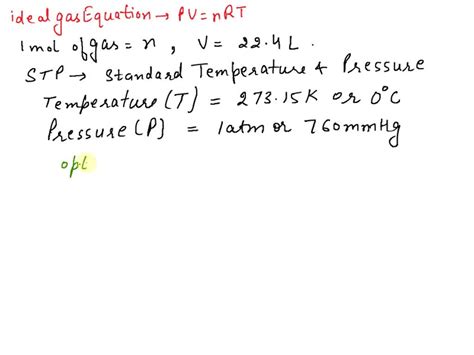 ideal gas Equation → PV = nRT
1 mol of gas = n , V = 22.4 L .
STP → Standard Temperature & Pressure
Temperature (T) = 273.15K or 0°C
Pressure (P) = 1 atm or 760 mmHg
opt